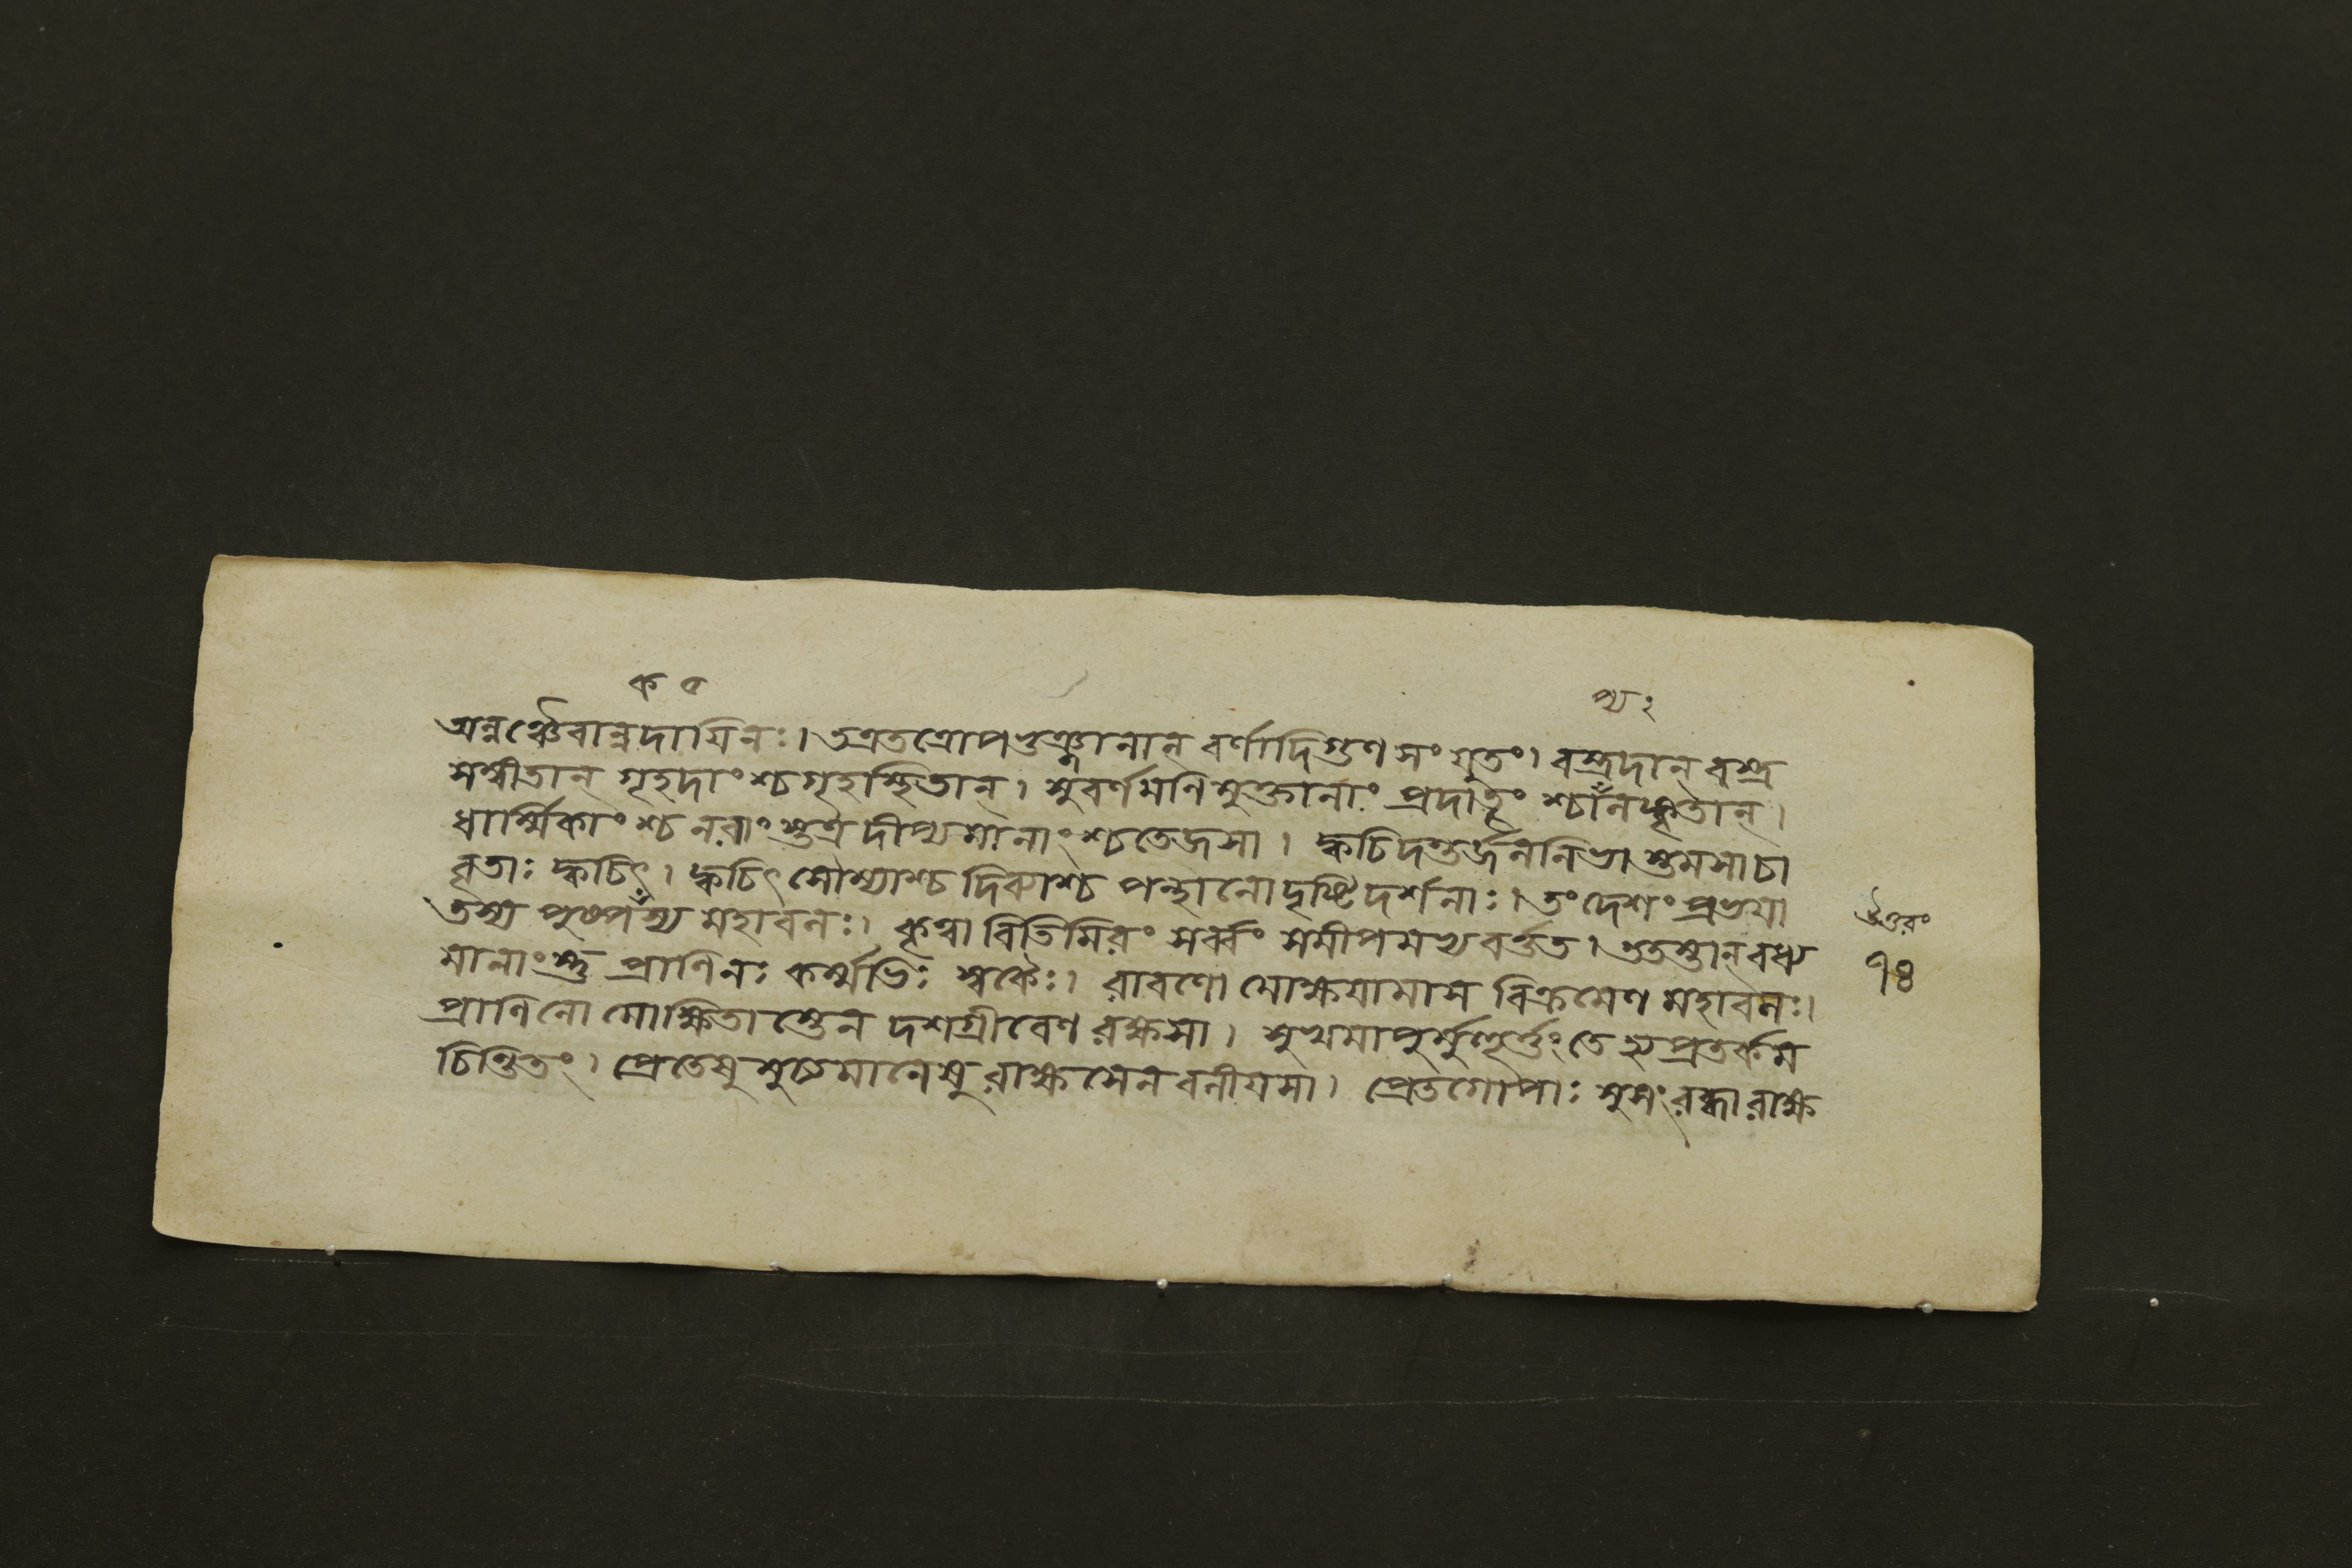 ক ৫ ঘ্য ২
অন্নঞ্চৈবান্নদায়িনঃ। তত্রতত্রোপভুঞ্জানান্ বর্ণাদিগুণসংযুতং। বস্ত্রদান্ বস্ত্র
সম্বীতান্ গৃহদাংশ্চগৃহাস্থিতান্। সুবর্ণমণিমুক্তানাং প্রদাতৄংশ্চানলঙ্কৃতান্।
ধার্ম্মিকাংশ্চ নরাংস্তত্র দীপ্যমানাংশ্চতেজসা। ক্বচিদন্তর্জননিভা স্তমসাচা
বৃতাঃ ক্বচিৎ। ক্বচিৎ সৌম্যাশ্চ দিব্যাশ্চ পন্থানোদৃষ্টিদর্শনাঃ। তংদেশং প্রভয়া
তস্য পুষ্পকস্য মহাবলঃ। কৃত্বা বিতিমিরং সর্ব্বং সমীপমভ্যবর্ত্তত। ততস্তান্ বধ্য
মানাংস্তু প্রাণিনঃ কর্ম্মভিঃ স্বকৈঃ। রাবণো মোক্ষয়ামাস বিক্রমেণ মহাবলঃ।
প্রাণিনো মোক্ষিতা স্তেন দশগ্রীবেণ রক্ষসা। সুখমাপুর্মুহূর্ত্তং তে হ্যপ্রতর্কম
চিন্তিতং। প্রেতেষু মুচ্যমানেষু রাক্ষসেন বলীয়সা। প্রেতগোপাঃ সুসংরব্ধা রাক্ষ
উত্তরং
৭৪